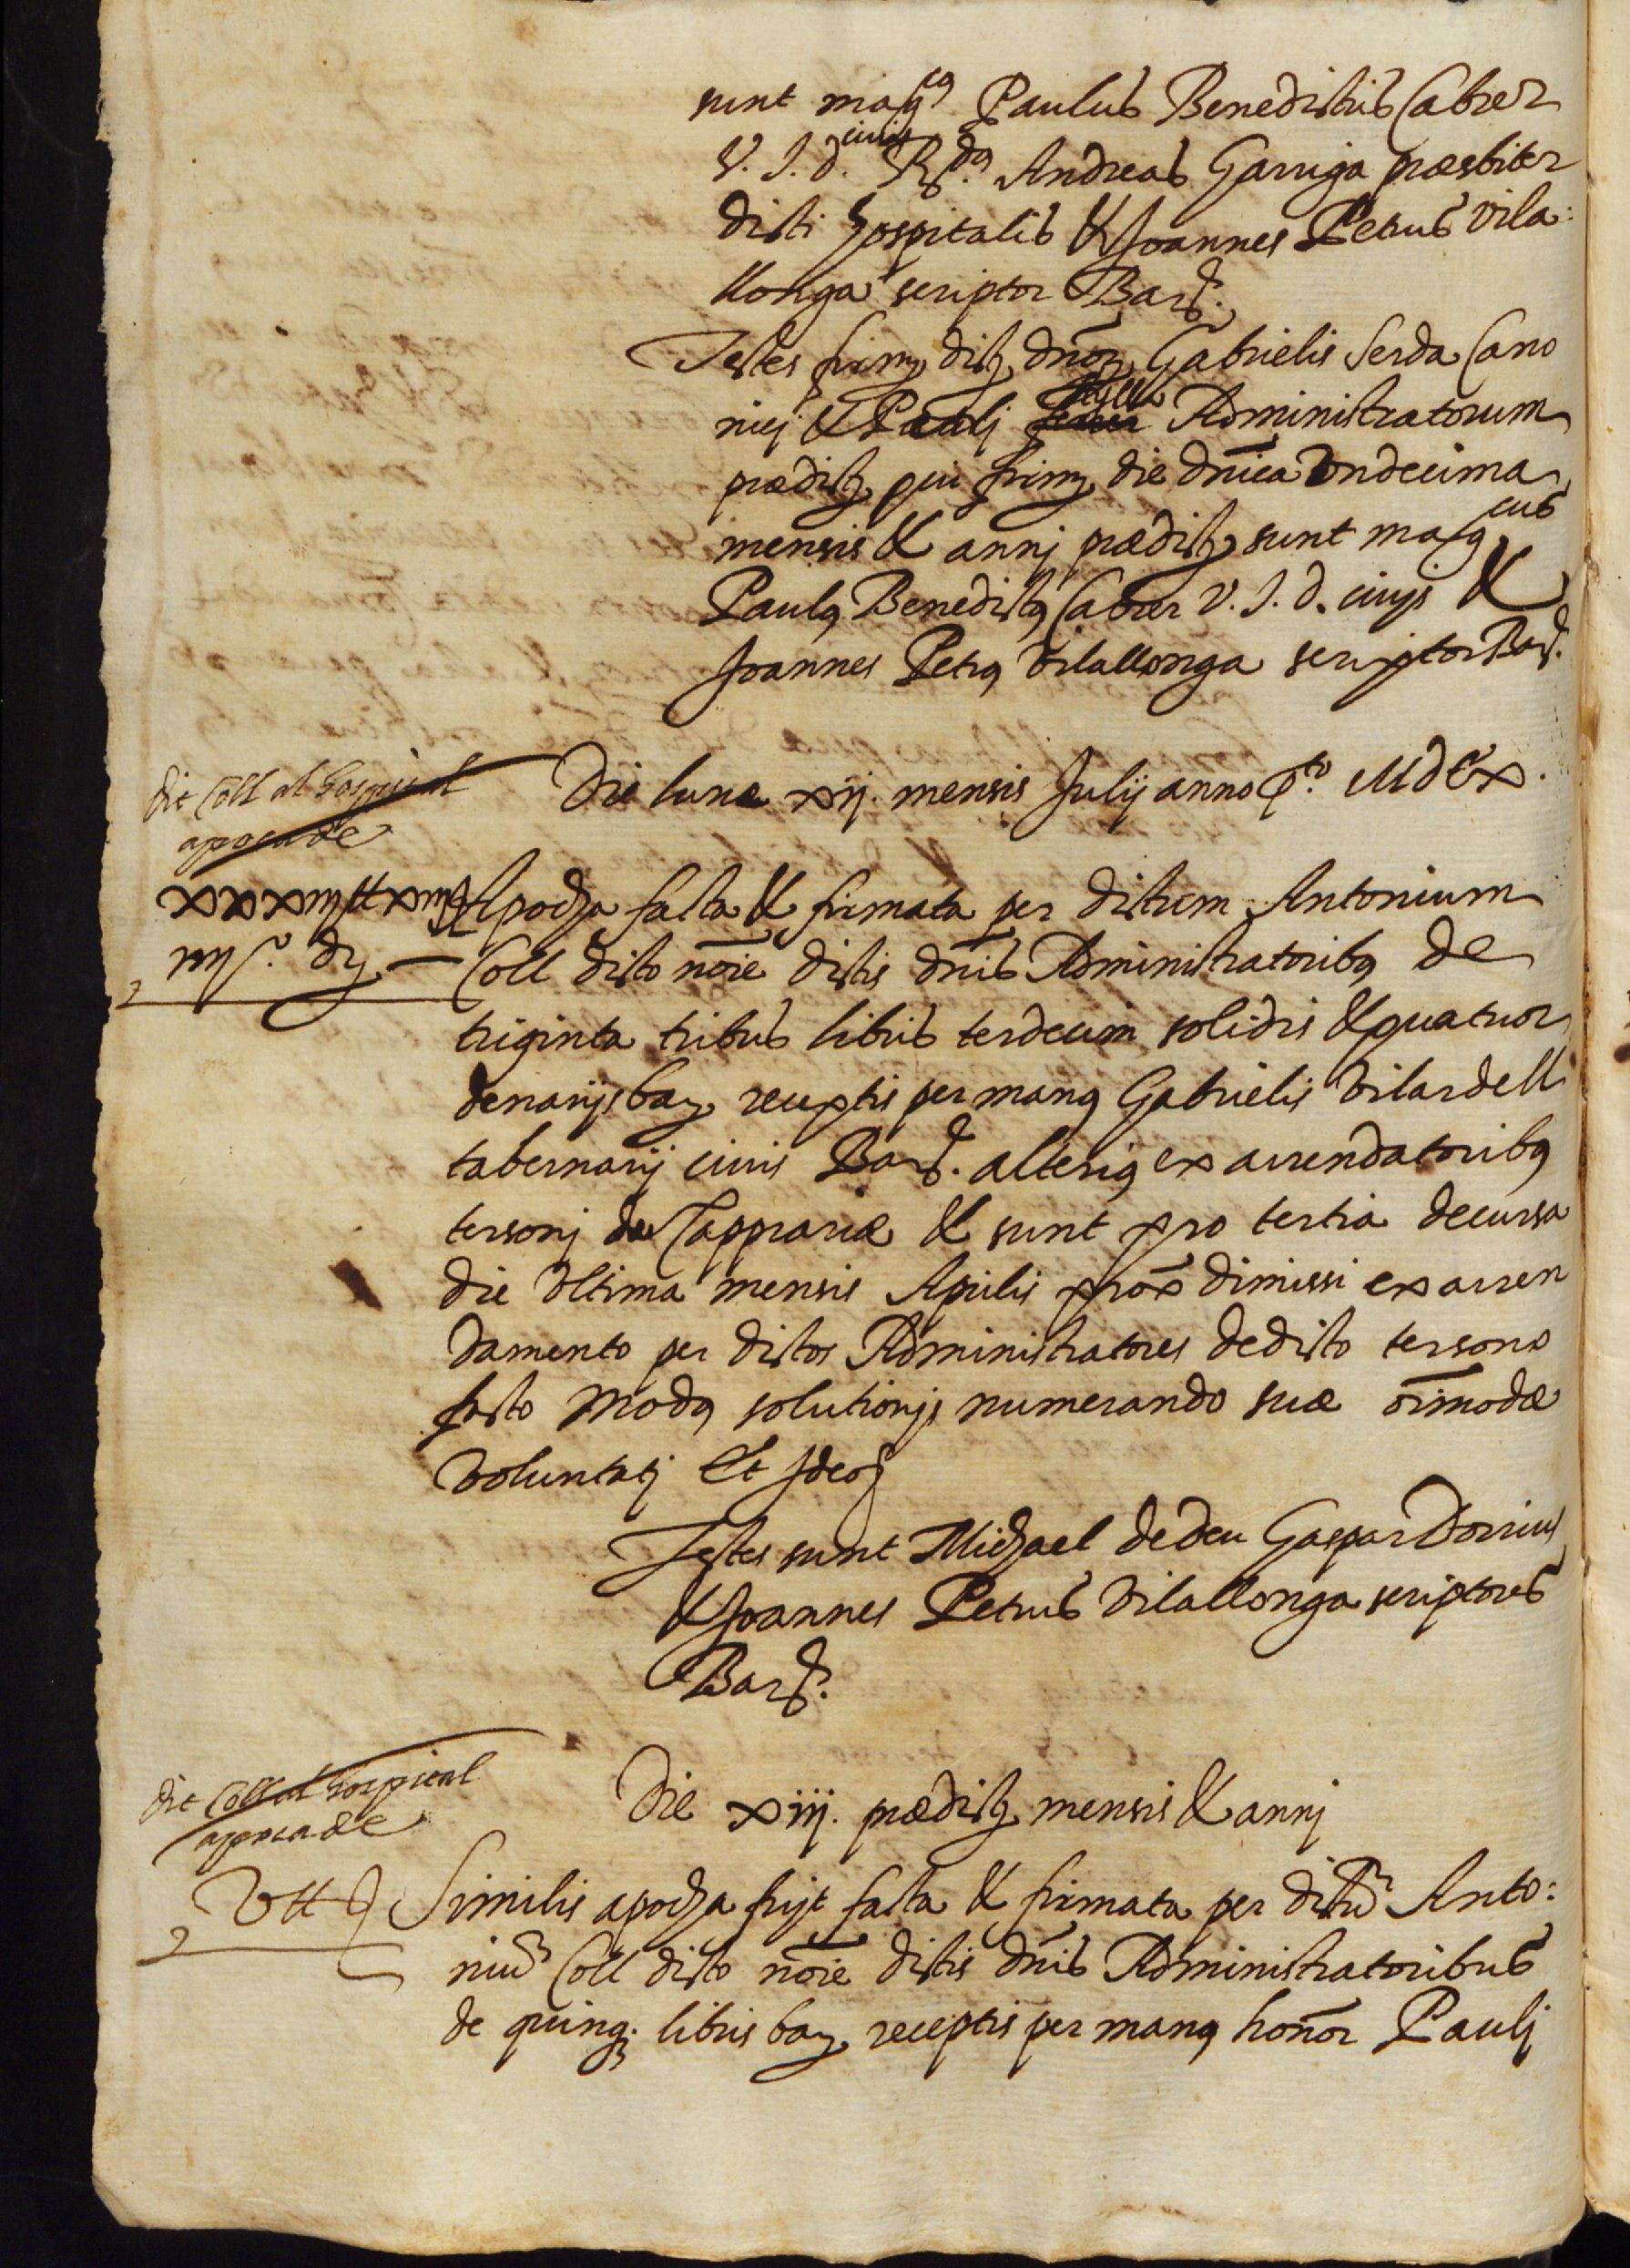 sunt mag.cus Paulus Benedictus Cabrer
V. J. d. civis R.dus Andreas Garriga præsbiter
dicti Hospitalis & Joannes Petrus Vila:
llonga scriptor Barc.
Testes firmæ dict. dnor. Gabrielis Serda Cano
nici & Pauli Administratorum
prædict. qui firm. die dnica Undecima
mensis & anni prædict. sunt mag.cus
Paulus Benedictus Cabrer V. J. d. civis &
Joannes Petrus Vilallonga scriptor Barc.
Die lunæ xij. mensis Julij anno P.to MdCx.
dit Coll al hospital
apocade
xxxiij ll xiij s
iiij d. Apocha facta & firmata per dictum Antonium
Coll dicto noie dictis dnis Administratoribus de
triginta tribus libris terdecim solidis & quatuor
denarijs bar. receptis per manus Gabrielis Vilardell
tabernarij civis Barc. alterius ex arrendatoribus
tersonj de Cappraria & sunt pro tertia decursa
die Ultima mensis Aprilis prox dimissi ex arren
damento per dictos Administratores de dicto tersono
facto Modus solutionis numerando suæ oimodæ
Voluntati Et Ideo
Testes sunt Michael dedeu Gaspar Dorrius
& Joannes Petrus Vilallonga scriptores
Barc.
dit Coll al hospital
apocade
Die xiij. prædict. mensis & anni
V ll Similis apocha fuit facta & firmata per dictū Anto:
niū Coll dicto noie dictis dnis Administratoribus
de quinq. libris bar. receptis per manus honor Pauli